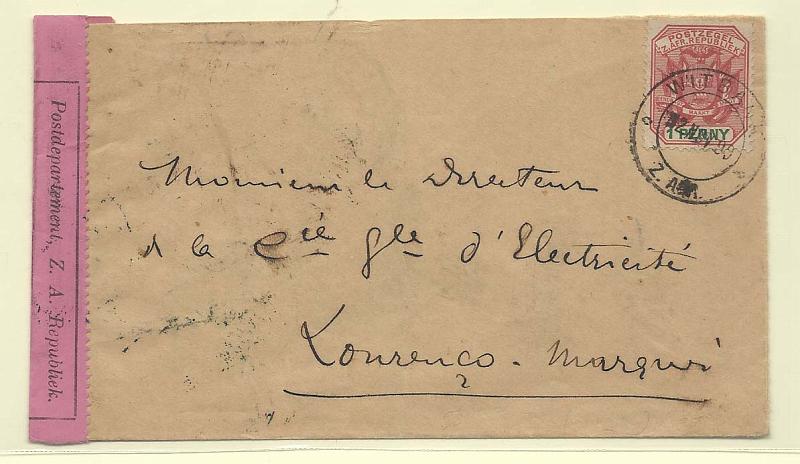 POSTZEGEL
Z. AFR. REPUBLIEK
1 PENNY
WITBANK
Z. AFR.
Monsieur le Directeur
de la Cie Gle d'Electricité
Lourenço-Marques
Postdepartement, Z. A. Republiek.